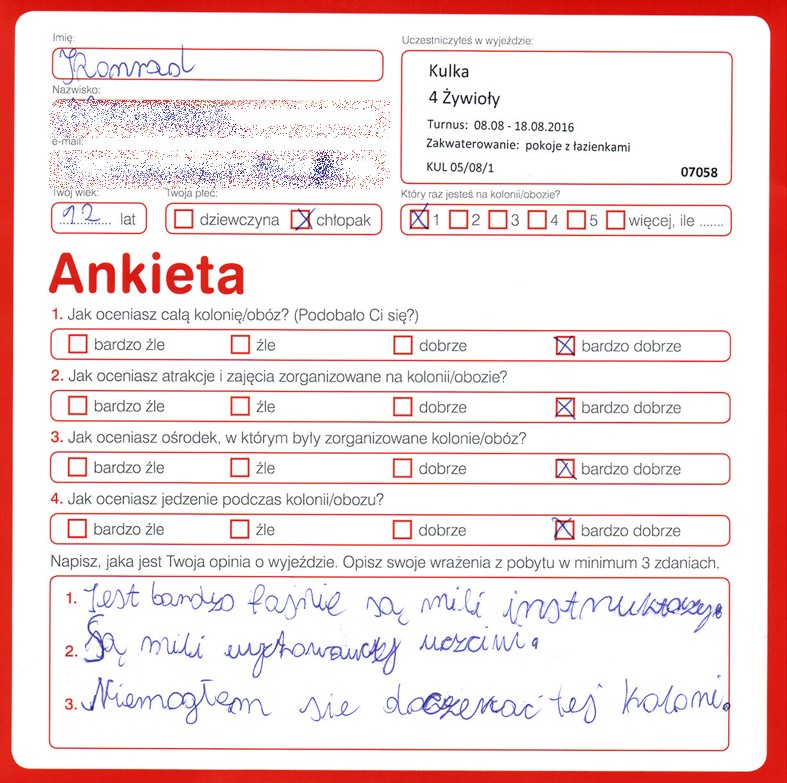 Imię:
Konrad
Nazwisko:
e-mail:
Twój wiek:
12 lat
Twoja płeć:
dziewczyna chłopak
Uczestniczyłeś w wyjeździe:
Kulka
4 Żywioły
Turnus: 08.08 - 18.08.2016
Zakwaterowanie: pokoje z łazienkami
KUL 05/08/1 07058
Który raz jesteś na kolonii/obozie?
1 2 3 4 5 więcej, ile .......
Ankieta
1. Jak oceniasz całą kolonię/obóz? (Podobało Ci się?)
bardzo źle źle dobrze bardzo dobrze
2. Jak oceniasz atrakcje i zajęcia zorganizowane na kolonii/obozie?
bardzo źle źle dobrze bardzo dobrze
3. Jak oceniasz ośrodek, w którym były zorganizowane kolonie/obóz?
bardzo źle źle dobrze bardzo dobrze
4. Jak oceniasz jedzenie podczas kolonii/obozu?
bardzo źle źle dobrze bardzo dobrze
Napisz, jaka jest Twoja opinia o wyjeździe. Opisz swoje wrażenia z pobytu w minimum 3 zdaniach.
1. Jest bardzo fajnie są mili instruktorzy.
2. Są mili wychowawcy
3. Niemogłem sie doczekać tej koloni.